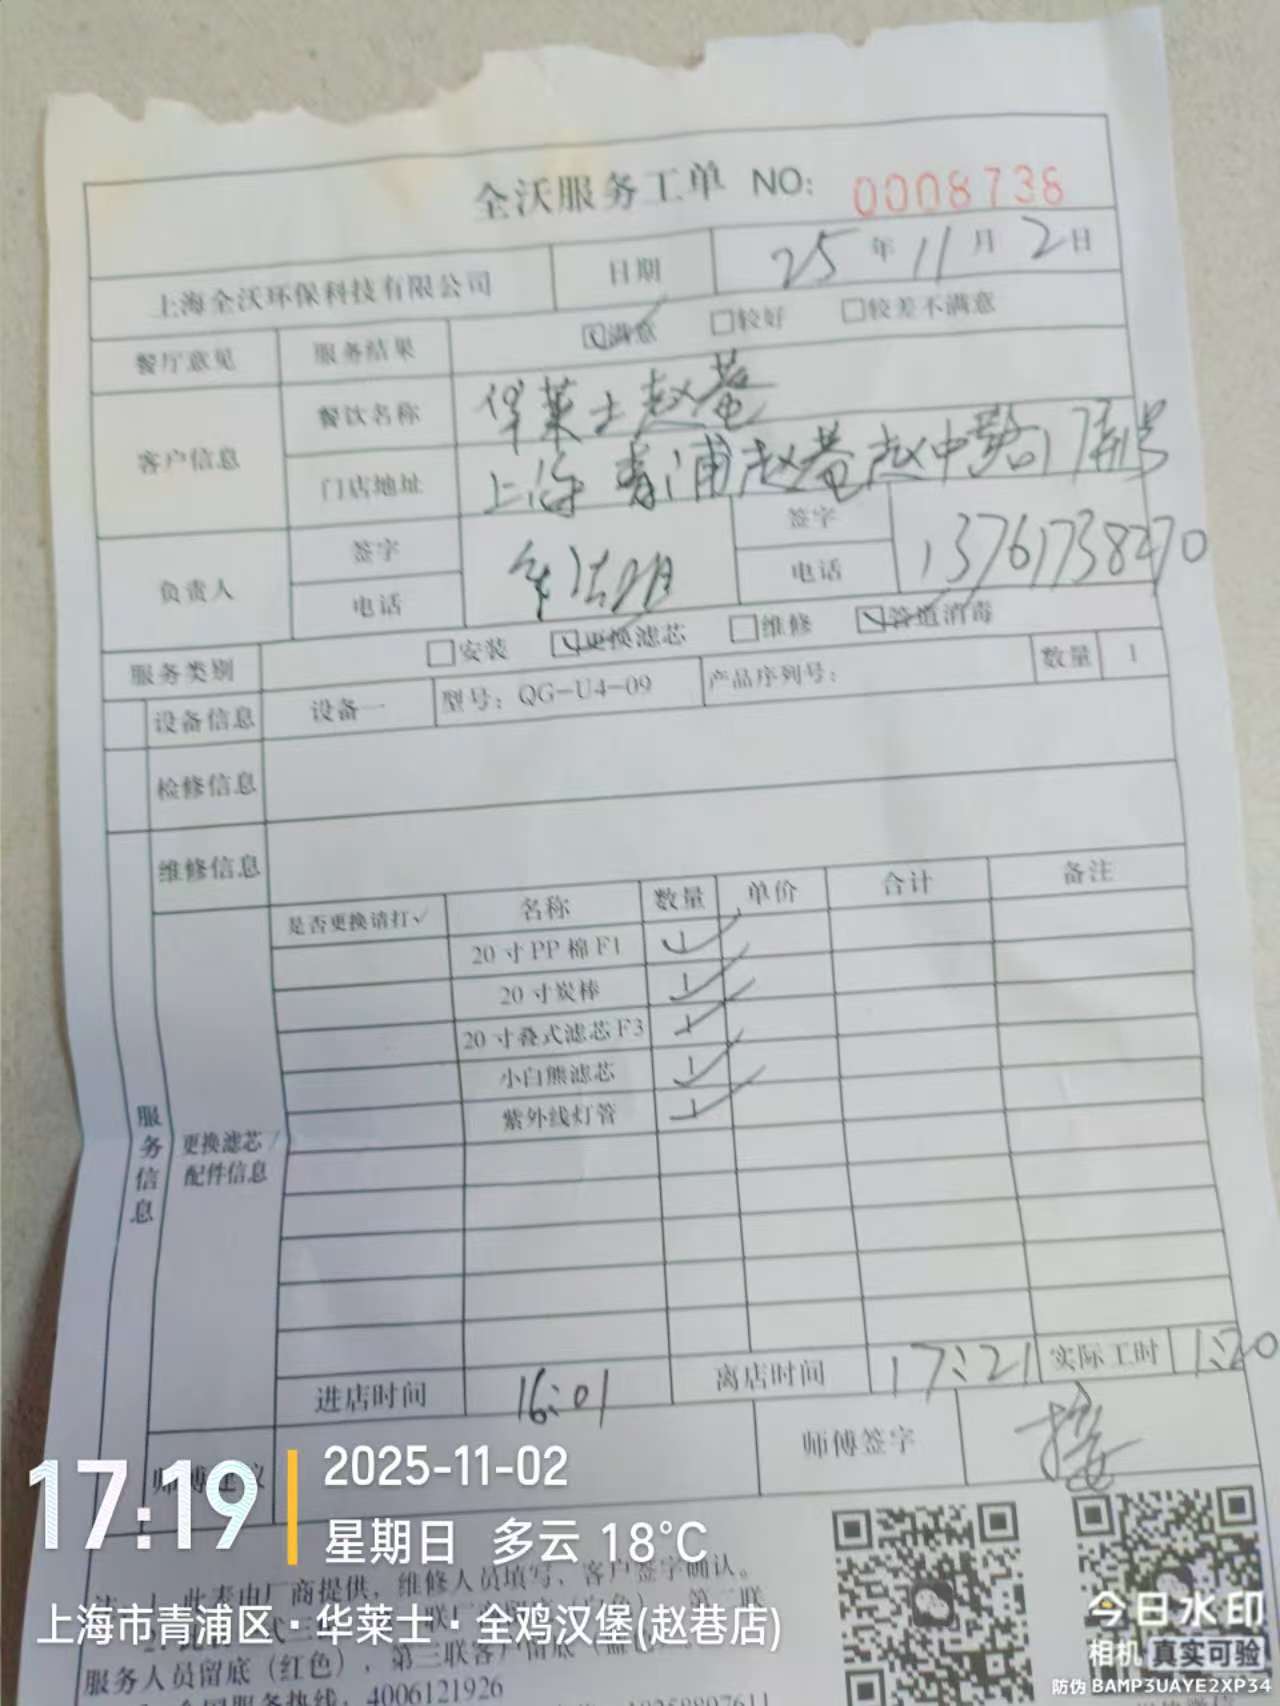 全沃服务工单 NO: 0008738
上海全沃环保科技有限公司 日期 25年11月2日
餐厅意见 服务结果 ☑满意 □较好 □较差不满意
客户信息 餐饮名称 华莱士赵巷
门店地址 上海青浦赵巷赵中路17号
负责人 签字 签字
电话 电话 13761738270
服务类别 □安装 ☑更换滤芯 □维修 ☑管道消毒
设备信息 设备一 型号:QG-U4-09 产品序列号: 数量 1
检修信息
维修信息
是否更换请打√ 名称 数量 单价 合计 备注
20寸PP棉F1 1
20寸炭棒 1
20寸叠式滤芯F3 1
小白熊滤芯 1
紫外线灯管 1
服务信息
更换滤芯/
配件信息
进店时间 16:01 离店时间 17:21 实际工时 1:20
师傅建议 师傅签字
17:19
2025-11-02
星期日 多云 18°C
此表由厂商提供,维修人员填写、客户签字确认。
上海市青浦区·华莱士·全鸡汉堡(赵巷店)
服务人员留底(红色),第三联客户留底
全国服务热线:4006121926
今日水印
相机 真实可验
防伪 BAMP3UAYE2XP34